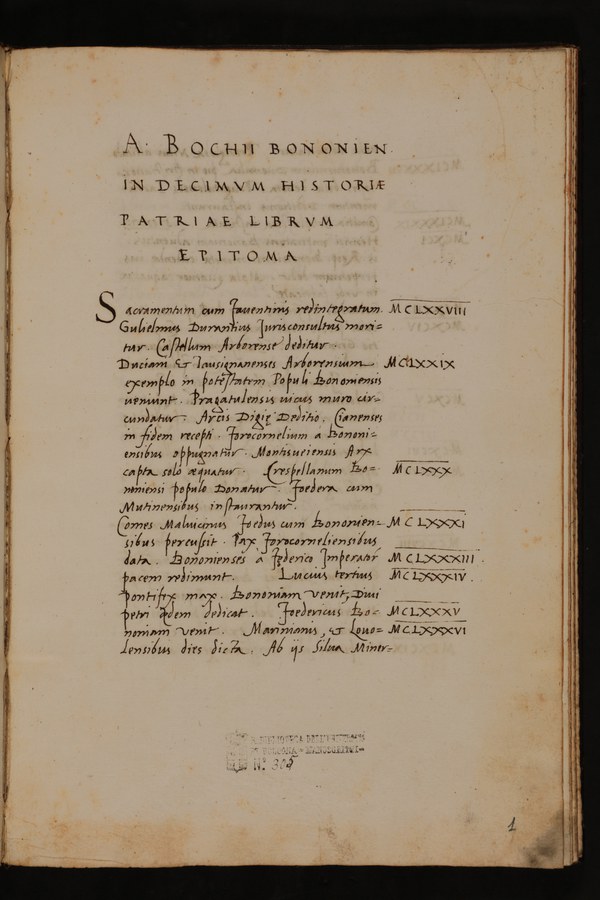 A. BOCHII BONONIEN
IN DECIMVM HISTORIÆ
PATRIAE LIBRVM
EPITOMA
Sacramentum cum Faventinis redintegratum. MCLXXVIII
Gulielmus Durantius Jurisconsultus mori=
tur. Castellum Arborense deditur.
Duciam & Lausignanenses Arborensium MCLXXIX
exemplo in potestatem Populi Bononiensis
veniunt. Pragatulensis vicus muro cir=
cundatur. Arcis Digię Deditio. Cianenses
in fidem recepti. Forocornelium a Bononi=
ensibus oppugnatur. Montisveiensis Arx
capta solo æquatur. Crespellanum Bo= MCLXXX
noniensi populo Donatur. Foedera cum
Mutinensibus instaurantur.
Comes Malvicinus Foedus cum Bononien= MCLXXXI
sibus percussit. Pax Forocorneliensibus
data. Bononienses a Federico Imperator MCLXXXIII.
pacem redimunt. Lucius tertius MCLXXXIV.
pontifex max. Bononiam venit, Divi
petri ædem dedicat. Foedericus Bo= MCLXXXV
noniam venit. Marimanis, & Lovo= MCLXXXVI
lensibus dies dicta. Ab ijs Silva Miner=
BIBLIOTECA
BOLOGNA - MANOSCRITTI
N.° 305
1